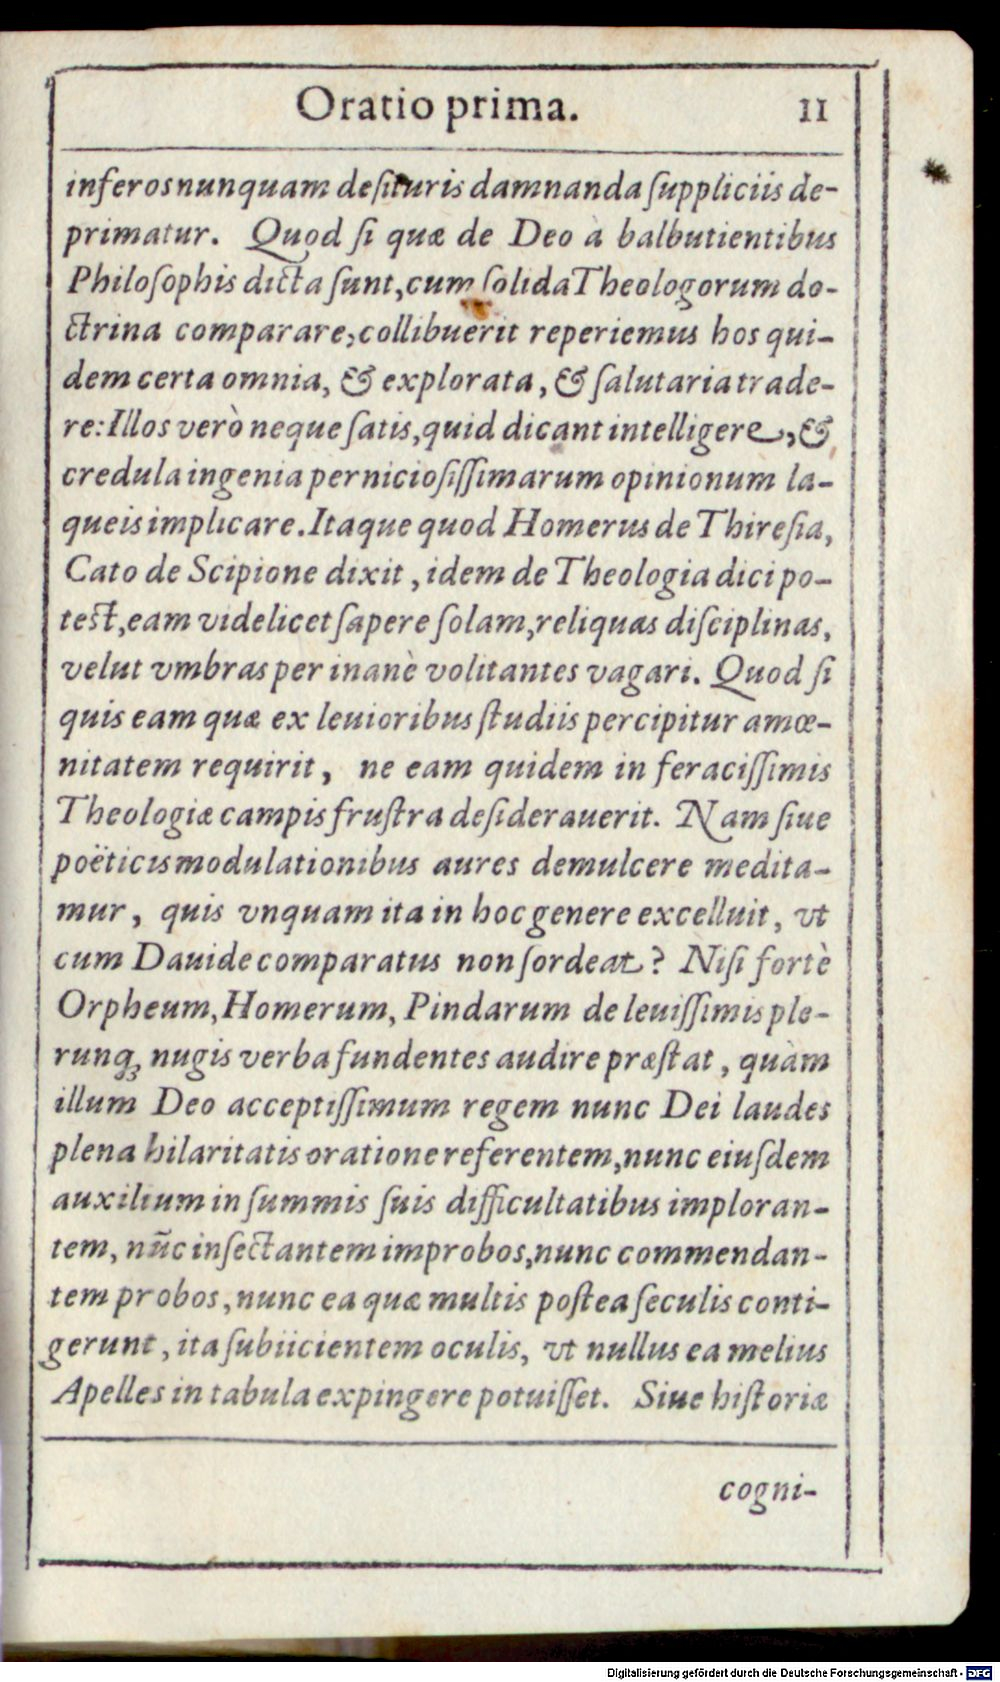 Oratio prima. 11
inferos nunquam desituris damnanda suppliciis de-
primatur. Quod si quæ de Deo à balbutientibus
Philosophis dicta sunt, cum solida Theologorum do-
ctrina comparare, collibuerit reperiemus hos qui-
dem certa omnia, & explorata, & salutaria trade-
re: Illos verò neque satis, quid dicant intelligere, &
credula ingenia perniciosissimarum opinionum la-
queis implicare. Itaque quod Homerus de Thiresia,
Cato de Scipione dixit, idem de Theologia dici po-
test, eam videlicet sapere solam, reliquas disciplinas,
velut vmbras per inanè volitantes vagari. Quod si
quis eam quæ ex leuioribus studiis percipitur amœ-
nitatem requirit, ne eam quidem in feracissimis
Theologiæ campis frustra desiderauerit. Nam siue
poëticis modulationibus aures demulcere medita-
mur, quis vnquam ita in hoc genere excelluit, vt
cum Dauide comparatus non sordeat? Nisi fortè
Orpheum, Homerum, Pindarum de leuissimis ple-
runq; nugis verba fundentes audire præstat, quàm
illum Deo acceptissimum regem nunc Dei laudes
plena hilaritatis oratione referentem, nunc eiusdem
auxilium in summis suis difficultatibus imploran-
tem, nũc insectantem improbos, nunc commendan-
tem probos, nunc ea quæ multis postea seculis conti-
gerunt, ita subiicientem oculis, vt nullus ea melius
Apelles in tabula expingere potuisset. Siue historiæ
cogni-
Digitalisierung gefördert durch die Deutsche Forschungsgemeinschaft - DFG